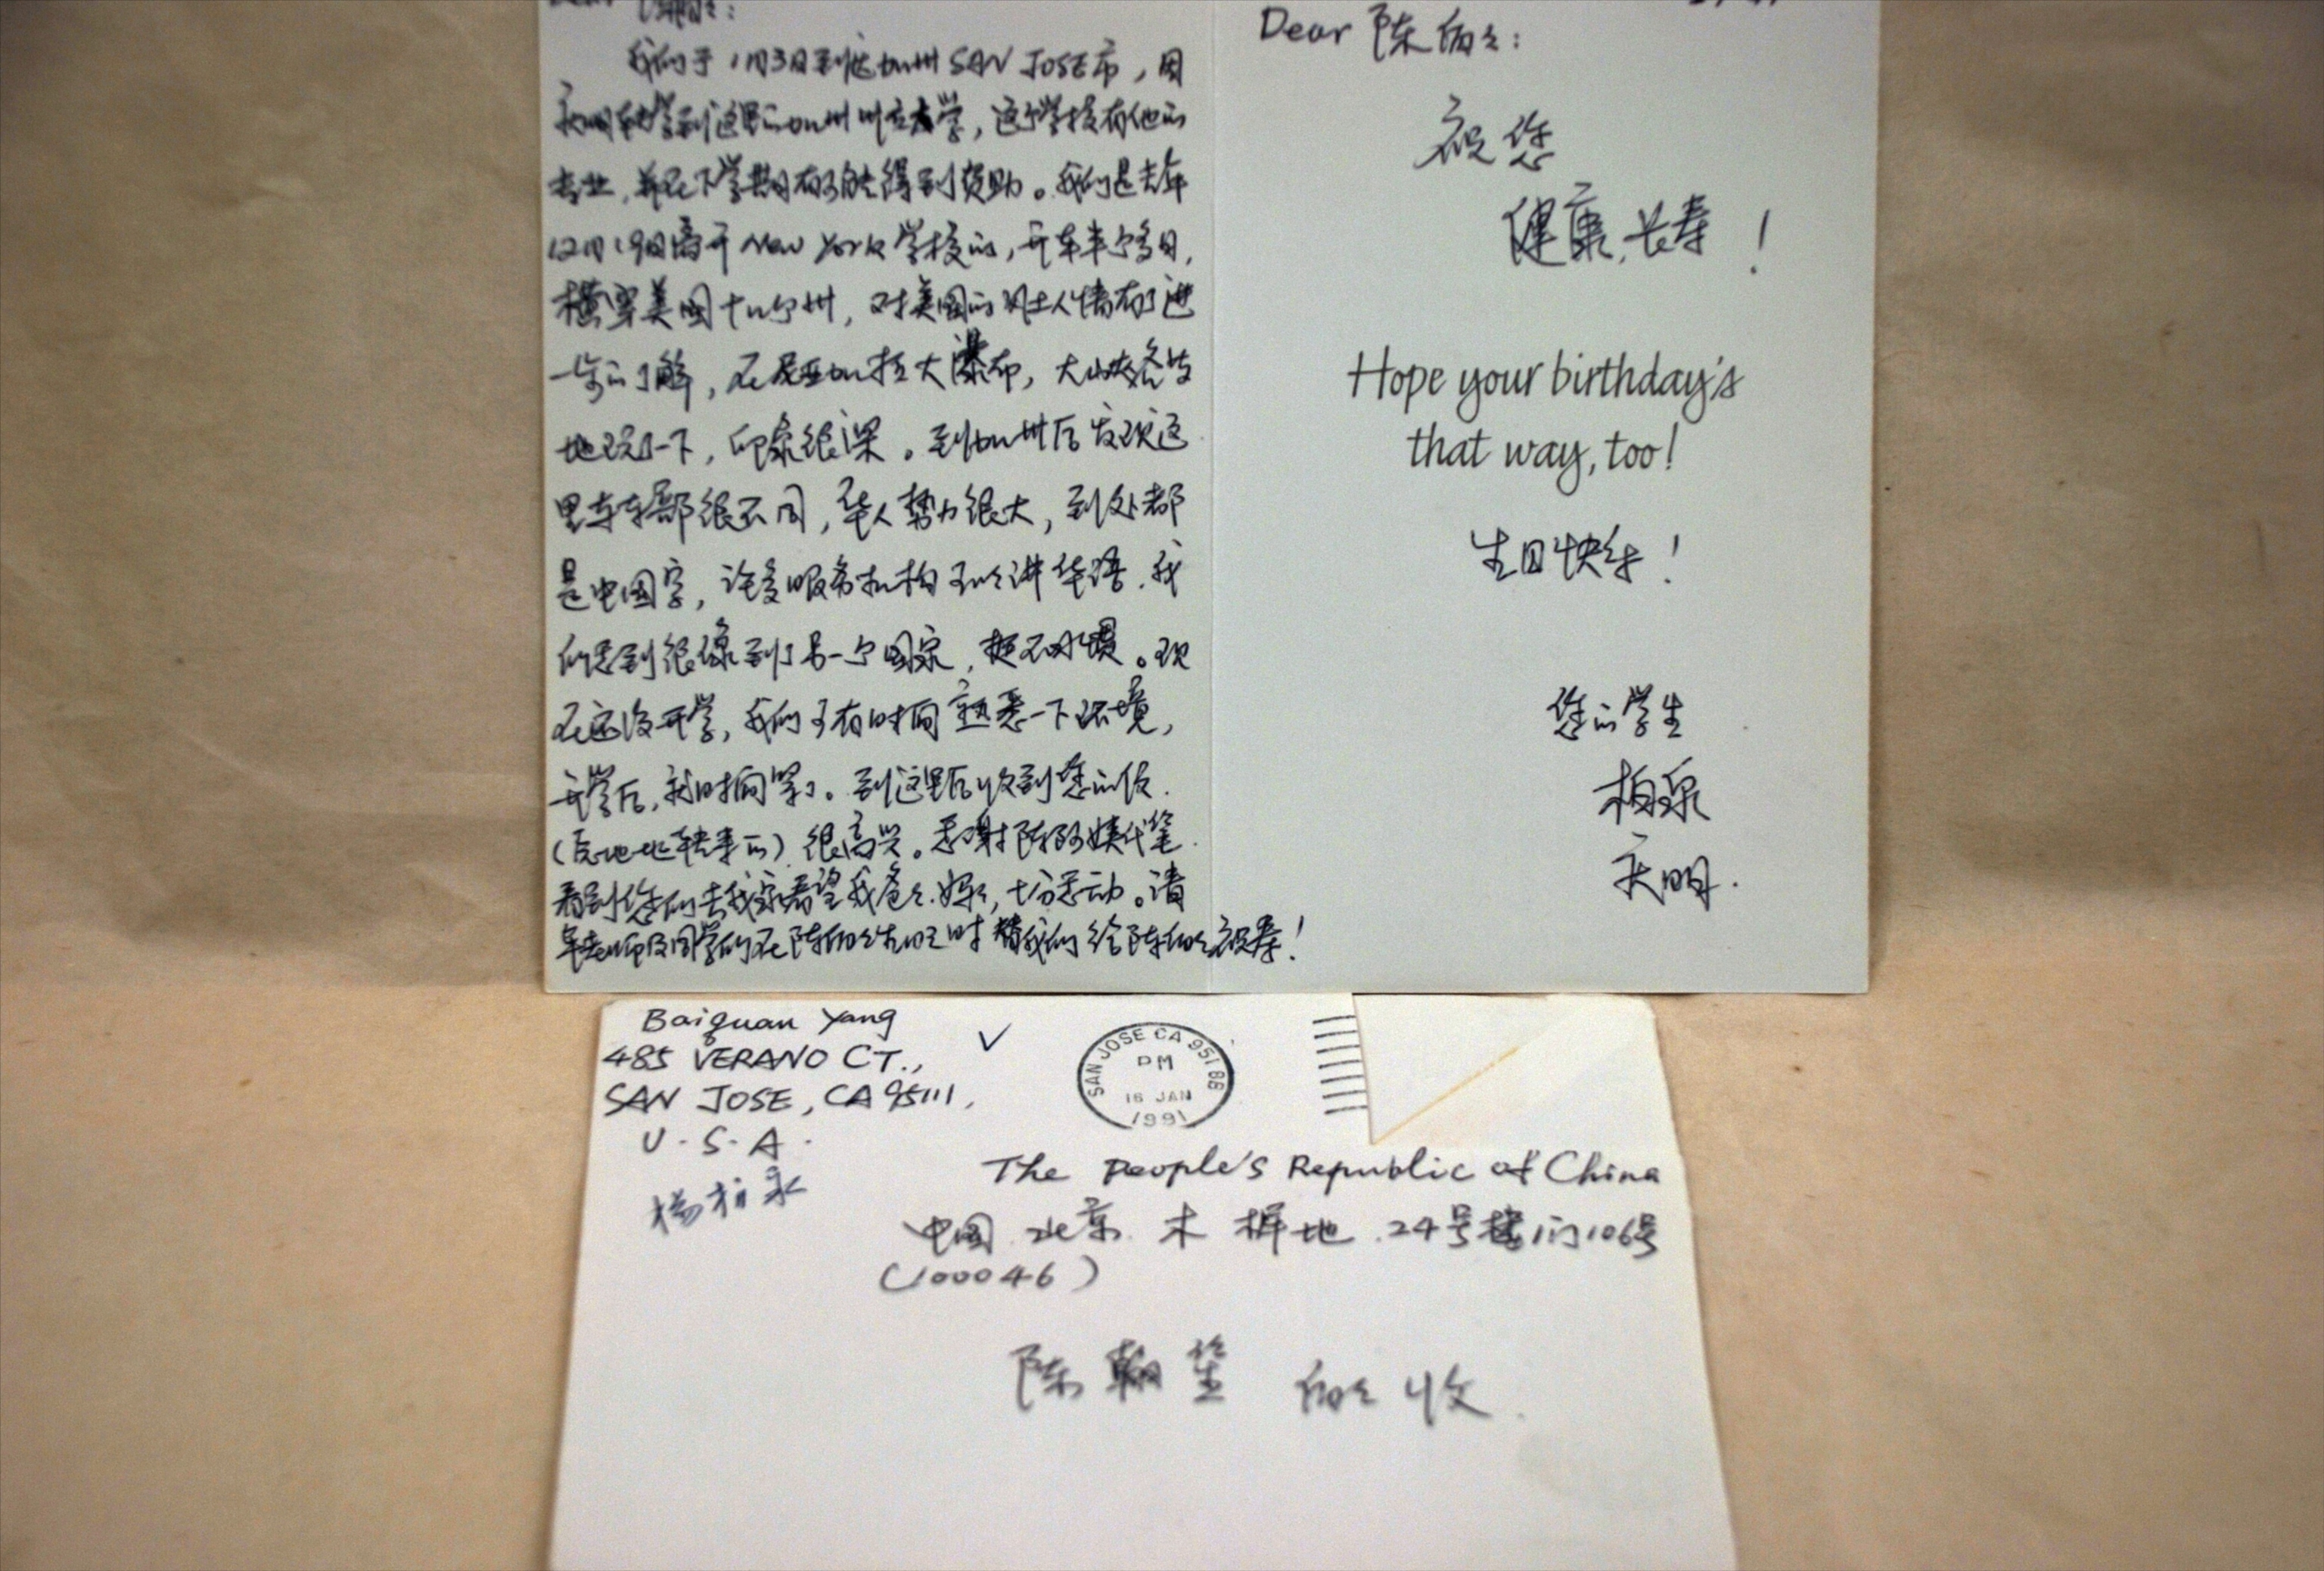 我们于1月3日到达加州 SAN JOSE市，因
庆明转学到这里的加州州立大学，这个学校有他的
专业，并在下学期有可能得到资助。我们是去年
12月19日离开 New York 学校的，开车半个多月，
横穿美国十几个州，对美国的风土人情有了进
一步的了解，在尼亚加拉大瀑布，大峡谷等
地玩了一下，印象很深。到加州后发现这
里与东部很不同，华人势力很大，到处都
是中国字，许多服务机构可以讲华语，我
们感到很像到了另一个国家，挺不习惯。现
在还没开学，我们可有时间熟悉一下环境，
开学后，就时间紧了。到这里后收到您的信
（原地址转来的）很高兴。感谢陈阿姨代笔
看到您们去我家看望我爸爸妈妈，十分感动。请
老师及同学们在陈伯伯生日时替我们给陈伯伯祝寿！
Dear 陈伯伯：
祝您
健康，长寿！
Hope your birthday's
that way, too!
生日快乐！
您的学生
柏泉
庆明.
Baiquan Yang
485 VERANO CT.,
SAN JOSE, CA 95111,
U.S.A.
杨柏泉
SAN JOSE CA 951 88
PM
16 JAN
1991
The People's Republic of China
中国 北京 木樨地 24号楼1门106号
(100046)
陈翰笙 伯伯 收